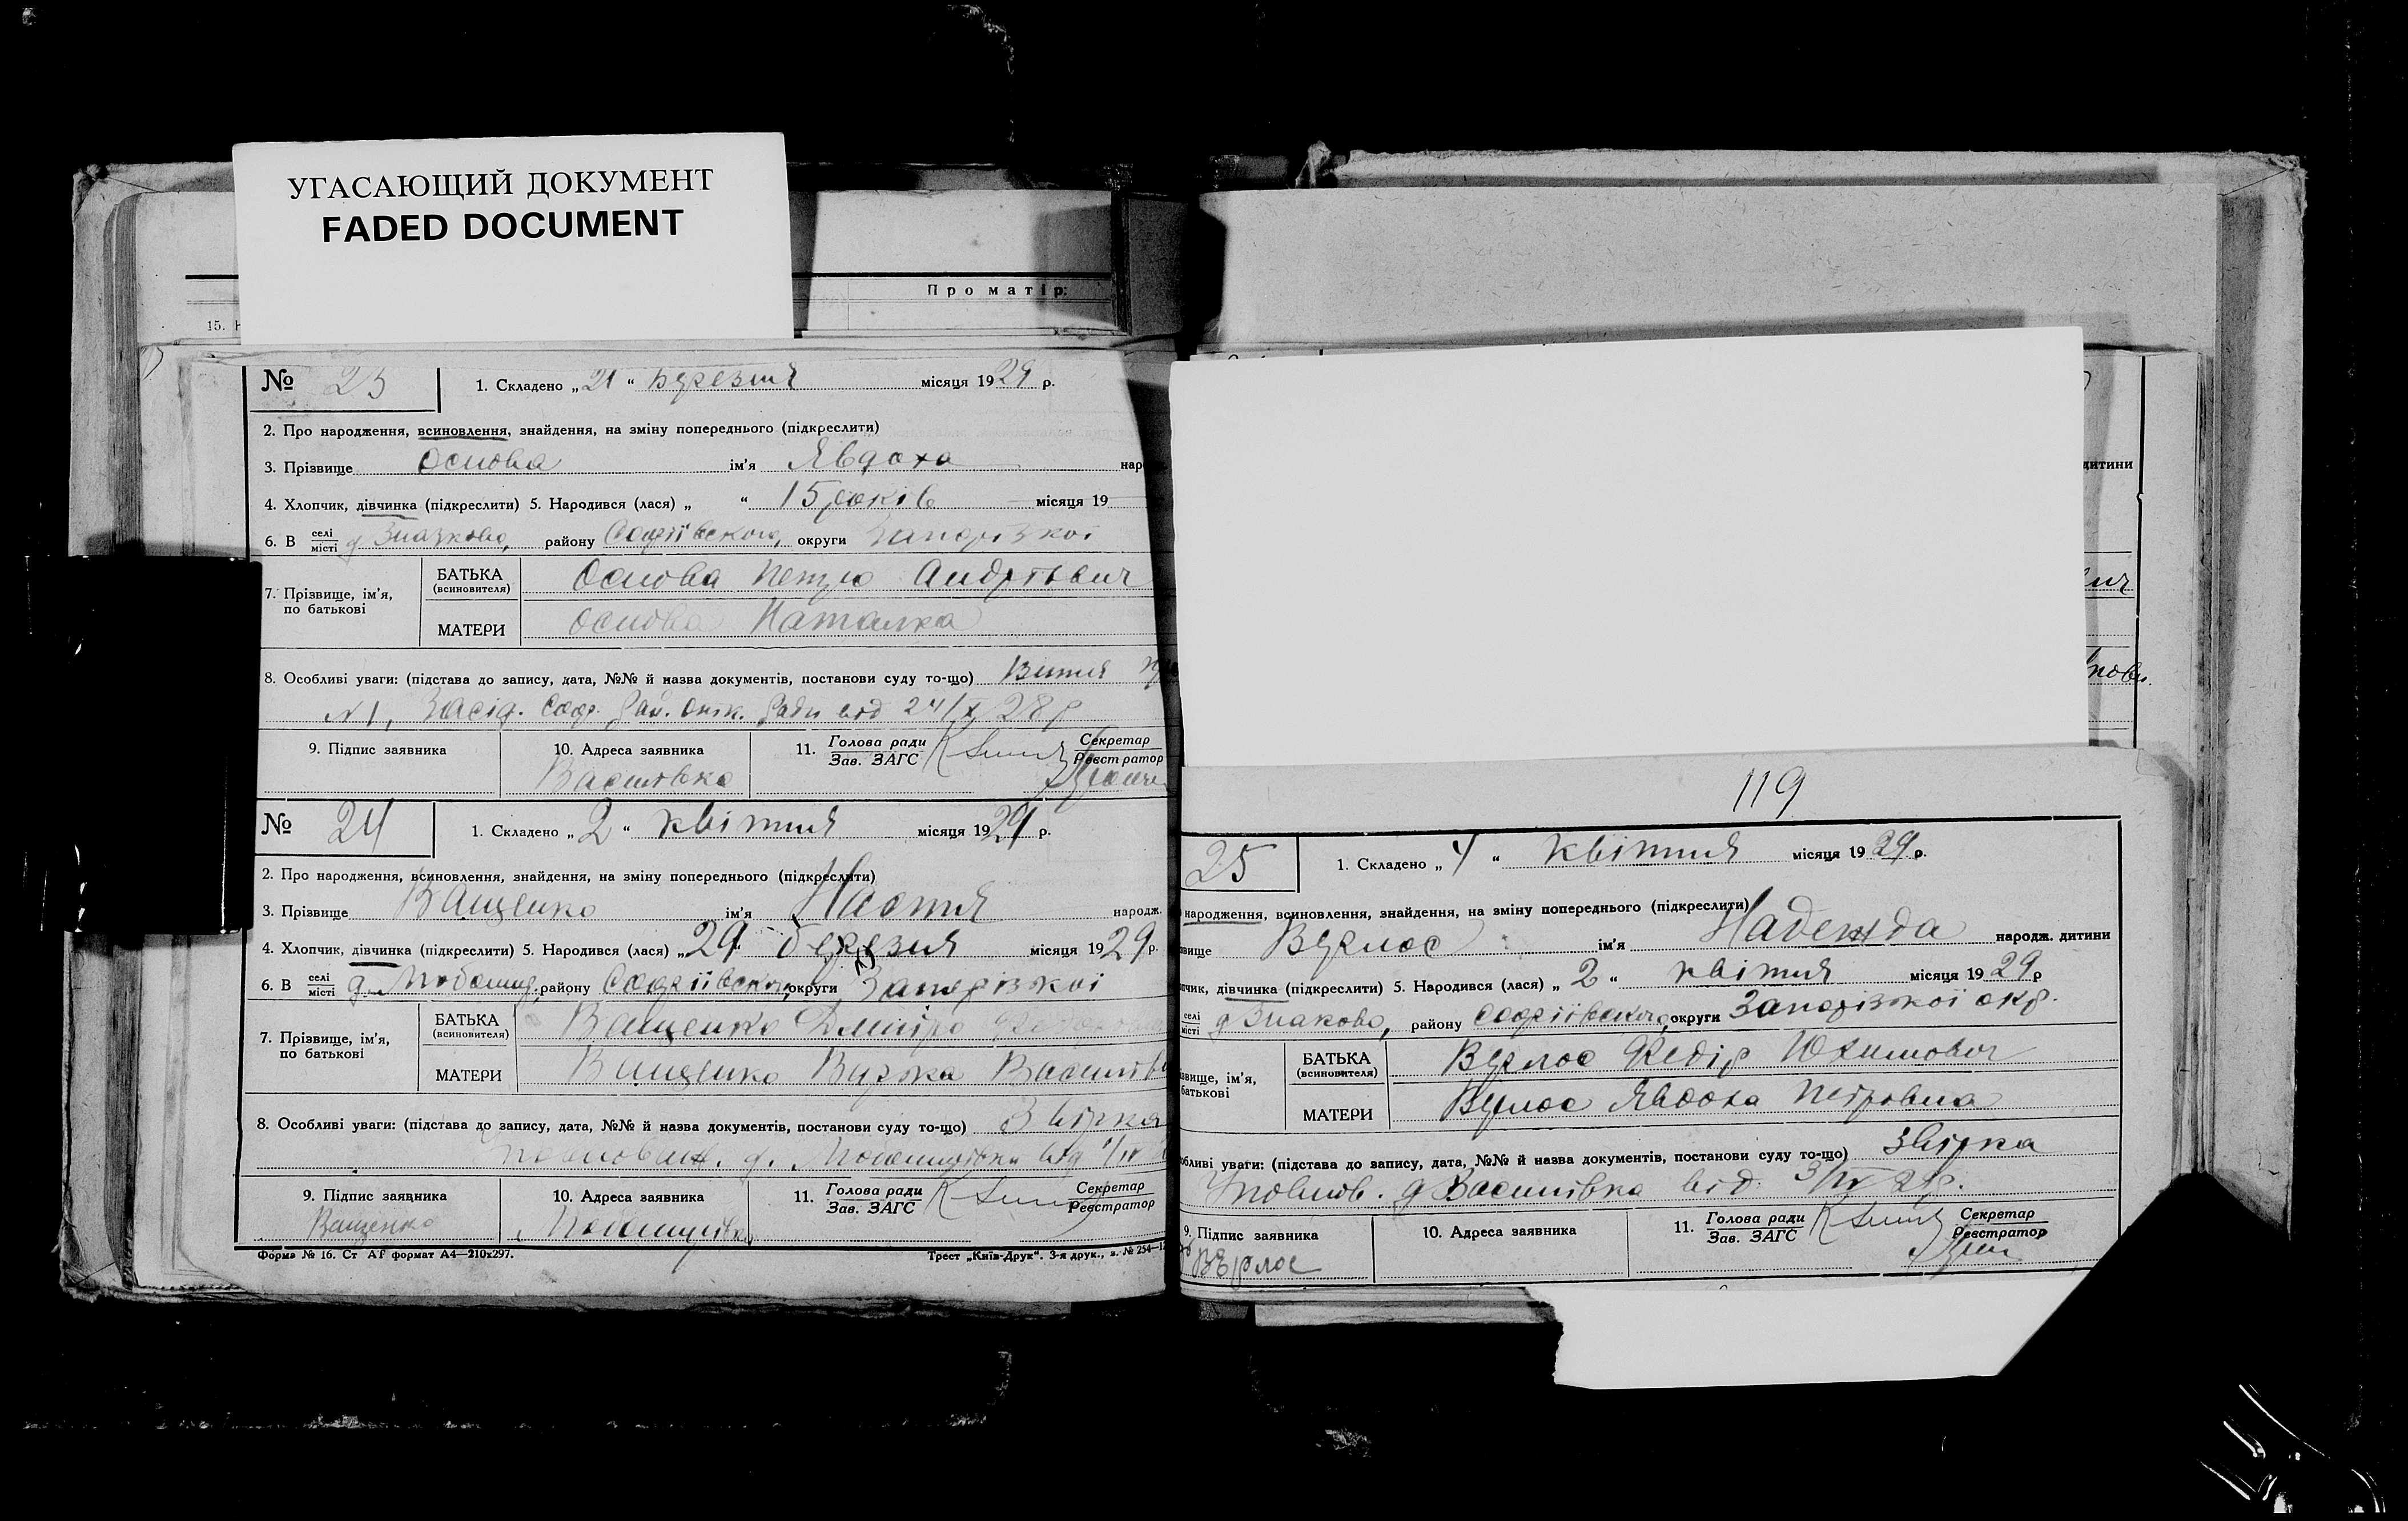 УГАСАЮЩИЙ ДОКУМЕНТ
FADED DOCUMENT
Про матір:
15.
№ 23 1. Складено „21“ березня місяця 1929 р.
2. Про народження, всиновлення, знайдення, на зміну попереднього (підкреслити)
3. Прізвище Основа ім'я Явдоха
4. Хлопчик, дівчинка (підкреслити) 5. Народився (лася) „ “ 15 років місяця 19
6. В селі місті району Софіївського, округи Запорізької
7. Прізвище, ім'я, по батькові
БАТЬКА (всиновителя) Основа Петро Андрієвич
МАТЕРИ Основа Наталка
8. Особливі уваги: (підстава до запису, дата, №№ й назва документів, постанови суду то-що) Витяг
N1, Засід. Соф. Рай. Вик. Ради від 24/X 28 р
9. Підпис заявника 10. Адреса заявника 11. Голова ради Зав. ЗАГС Секретар Реєстратор
Василівка
№ 24 1. Складено „2“ квітня місяця 1929 р.
2. Про народження, всиновлення, знайдення, на зміну попереднього (підкреслити)
3. Прізвище Ващенко ім'я Настя народж.
4. Хлопчик, дівчинка (підкреслити) 5. Народився (лася) „29“ березня місяця 1929 р.
6. В селі місті району Софіївського, округи Запорізької
7. Прізвище, ім'я, по батькові
БАТЬКА (всиновителя) Ващенко Дмитро
МАТЕРИ Ващенко
8. Особливі уваги: (підстава до запису, дата, №№ й назва документів, постанови суду то-що) Звірка
Уповноваж. д. від 1/IV
9. Підпис заявника 10. Адреса заявника 11. Голова ради Зав. ЗАГС Секретар Реєстратор
Ващенко
Форма № 16. Ст АГ формат А4—210х297.
Трест „Київ-Друк“. 3-я друк., з. № 254—1
дитини
119
25 1. Складено „4“ квітня місяця 1929 р.
народження, всиновлення, знайдення, на зміну попереднього (підкреслити)
звище Верлос ім'я Надежда народж. дитини
пчик, дівчинка (підкреслити) 5. Народився (лася) „2“ квітня місяця 1929 р
селі місті д Знаково, району Софіївського, округи Запорізької окр.
звище, ім'я, батькові
БАТЬКА (всиновителя) Верлос Федір Юхимович
МАТЕРИ Верлос Явдоха Петровна
бливі уваги: (підстава до запису, дата, №№ й назва документів, постанови суду то-що) звірка
Уповнов. д Василівка від 3/IV 29р.
9. Підпис заявника 10. Адреса заявника 11. Голова ради Зав. ЗАГС Секретар Реєстратор
Верлос